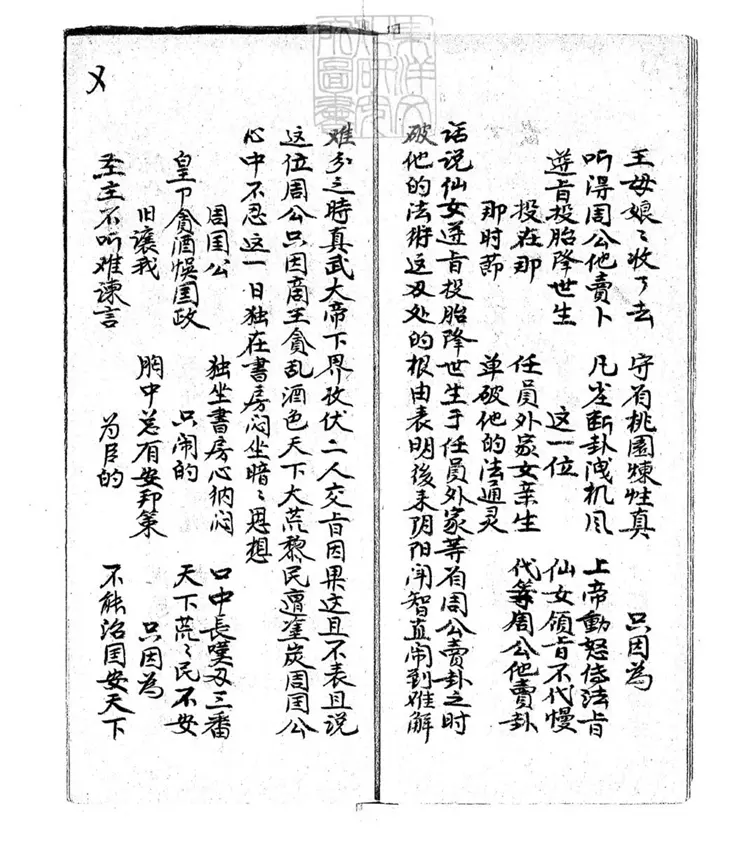 王母娘〻收了去 守有桃園煉性真 只因為
听得周公他賣卜 断卦洩机 上帝動怒传法旨
遵旨投胎降世生 这一位 仙女領旨不代慢
投在那 任員外家女亲生 代等周公他賣卦
那时節 单破他的法通灵
话说仙女遵旨投胎降世生于任員外家等有周公賣卦之时
破他的法術这刄处的根由表明後来阴阳闹智直闹到难解
难分之時真武大帝下界收伏二人交旨因果这且不表且说
这位周公只因商王貪乱酒色天下大荒黎民遭塗炭周囯公
心中不忍这一日独在書房闷坐暗〻思想
周囯公 独坐書房心纳闷 口中長嘆刄三番
皇下貪酒悞囯政 只闹的 天下荒〻民不安
旧讓我 胸中总有安邦策 只因為
圣主不听难谏言 为臣的 不能治囯安天下
〤